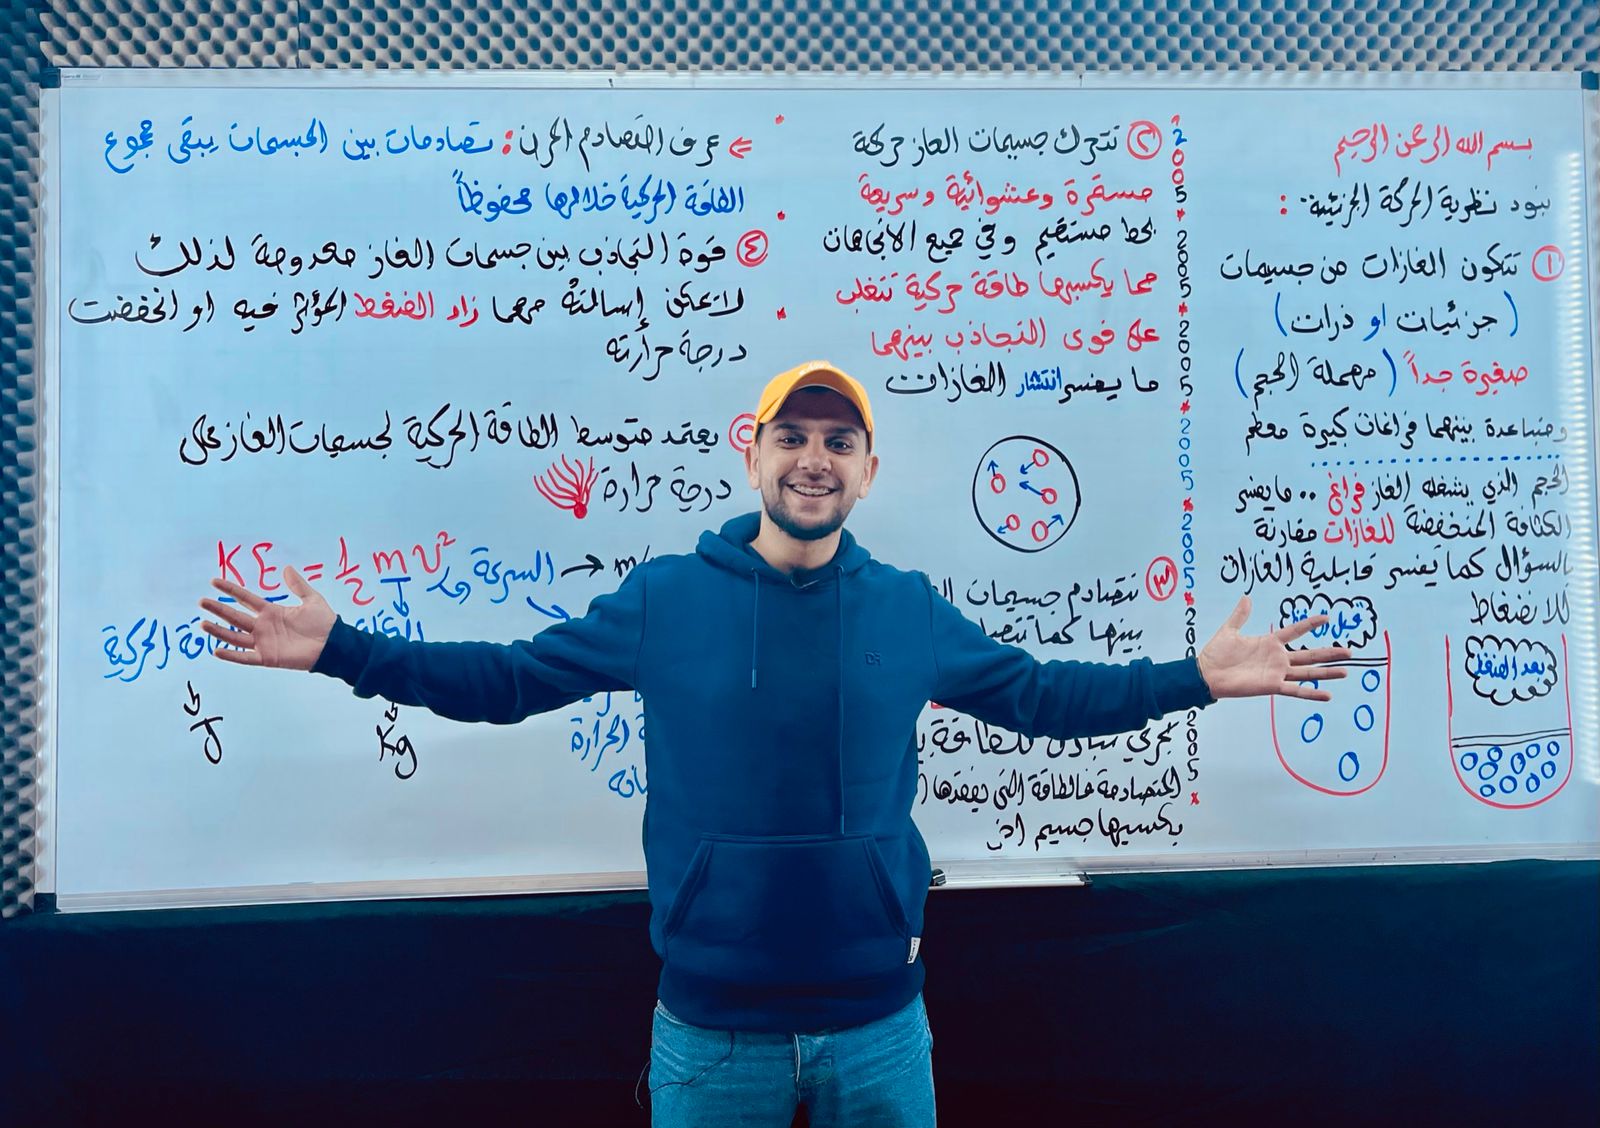 بسم الله الرحمن الرحيم
بنود نظرية الحركة الجزيئية :
١ تتكون الغازات من جسيمات
( جزيئات او ذرات )
صغيرة جداً ( مهملة الحجم )
ومتباعدة بينهما فراغات كبيرة معظم
الحجم الذي يشغله الغاز فراغ .. ما يفسر
الكثافة المنخفضة للغازات مقارنة
بالسؤال كما يفسر قابلية الغازات
للانضغاط
بعد الضغط
2005 * 2005 * 2005 * 2005 * 2005 *
٢ تتحرك جسيمات الغاز حركة
مستقرة وعشوائية وسريعة
بخط مستقيم وفي جميع الاتجاهات
مما يكسبها طاقة حركية تتغلب
على قوى التجاذب بينهما
ما يفسر انتشار الغازات
٣ تتصادم جسيمات
بينها كما
المتصادمة فالطاقة التي يفقدها
يكسبها جسيم اخر
عرف التصادم المرن : تصادمات بين الجسيمات يبقى مجموع
الطاقة الحركية خلالها محفوظاً
٤ قوة التجاذب بين جسيمات الغاز معدومة لذلك
لا يمكن إسالته مهما زاد الضغط المؤثر فيه او انخفضت
درجة حرارته
يعتمد متوسط الطاقة الحركية لجسيمات الغاز على
درجة حرارة
KE = 1/2 mv² السرعة → m/
الحركية
J
Kg
الحرارة